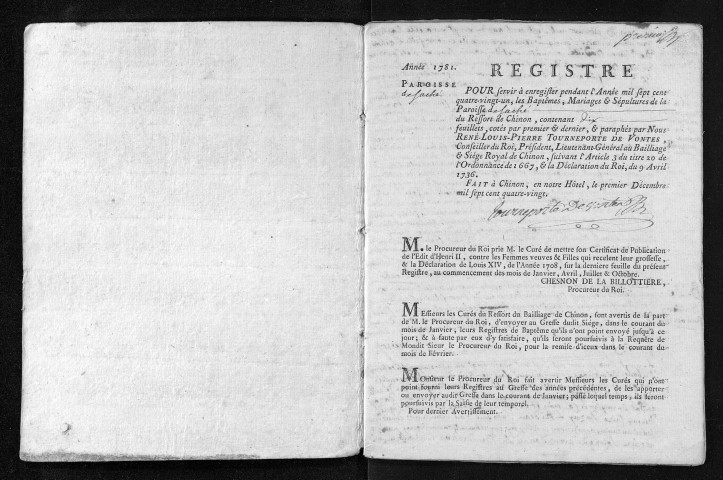 premier
Année 1781.
REGISTRE
PAROISSE
de saché
POUR servir à enregister pendant l'Année mil sept cent
quatre-vingt-un, les Baptêmes, Mariages & Sépultures de la
Paroisse de saché
du Ressort de Chinon, contenant dix
feuillets, cotés par premier & dernier, & paraphés par Nous
RENÉ-LOUIS-PIERRE TOURNEPORTE DE VONTES,
Conseiller du Roi, Président, Lieutenant-Général au Bailliage
& Siége Royal de Chinon, suivant l'Article 3 du titre 20 de
l'Ordonnance de 1667, & la Déclaration du Roi, du 9 Avril
1736.
FAIT à Chinon, en notre Hôtel, le premier Décembre
mil sept cent quatre-vingt.
Tourneporte De vontes
M. le Procureur du Roi prie M. le Curé de mettre son Certificat de Publication
de l'Edit d'Henri II, contre les Femmes veuves & Filles qui recelent leur grossesse,
& la Déclaration de Louis XIV, de l'Année 1708, sur la derniere feuille du présent
Registre, au commencement des mois de Janvier, Avril, Juillet & Octobre.
CHESNON DE LA BILLOTTIERE,
Procureur du Roi.
MEssieurs les Curés du Ressort du Bailliage de Chinon, sont avertis de la part
de M. le Procureur du Roi, d'envoyer au Greffe dudit Siége, dans le courant du
mois de Janvier, leurs Registres de Baptême qu'ils n'ont point envoyé jusqu'à ce
jour; & à faute par eux d'y satisfaire, qu'ils seront poursuivis à la Requête de
Mondit Sieur le Procureur du Roi, pour la remise d'iceux dans le courant du
mois de Février.
MOnsieur le Procureur du Roi fait avertir Messieurs les Curés qui n'ont
point fourni leurs Registres au Greffe des années précédentes, de les apporter
ou envoyer audit Greffe dans le courant de Janvier; passé lequel temps, ils seront
poursuivis par la Saisie de leur temporel.
Pour dernier Avertissement.